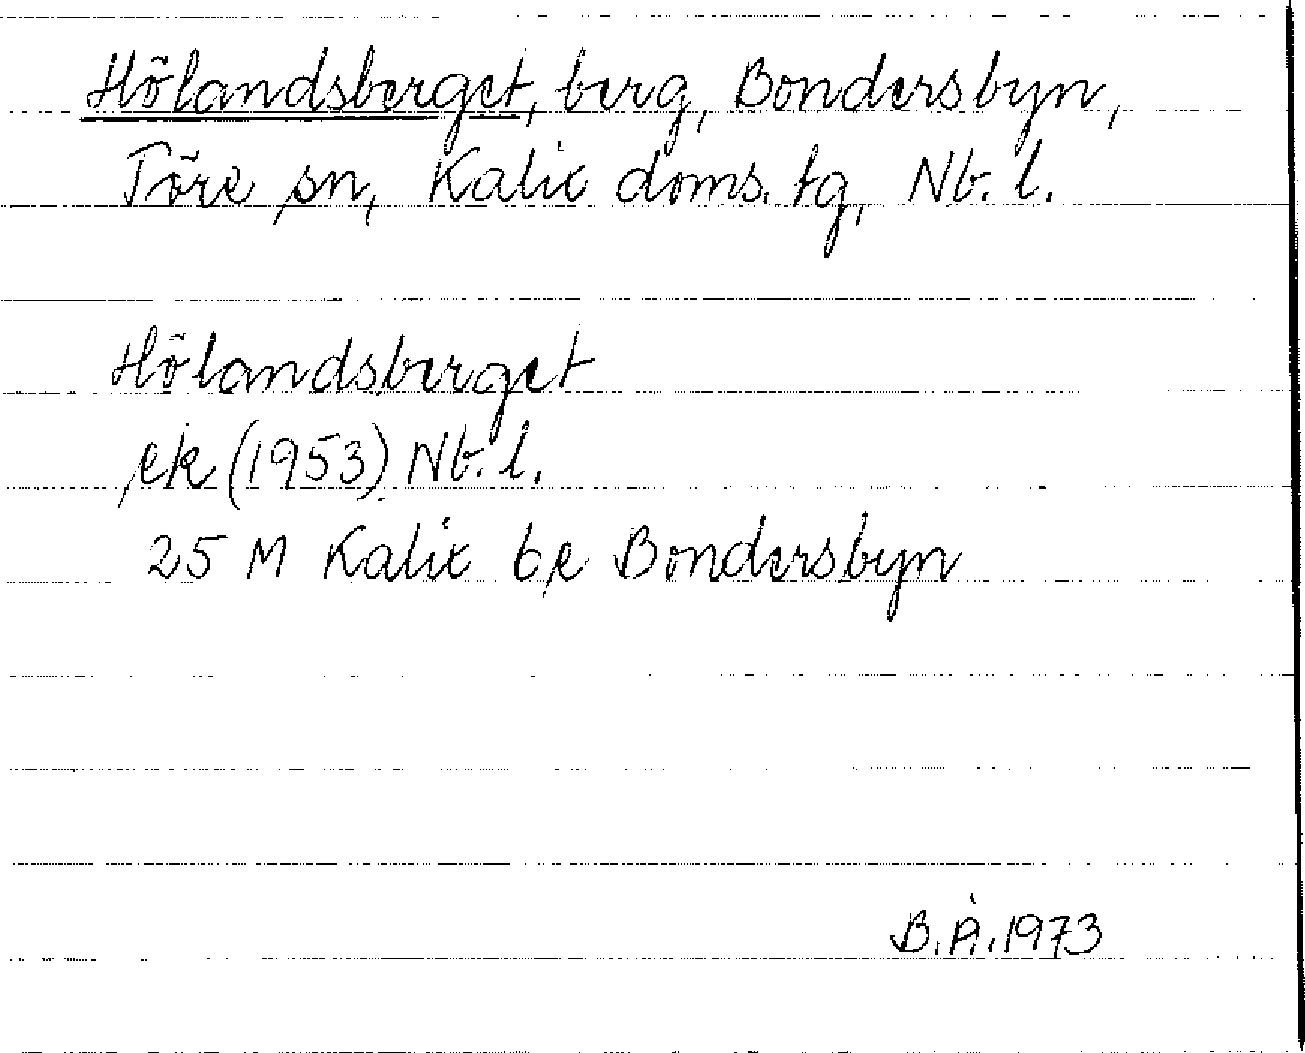 Hölandsberget, berg, Bondersbyn,
Töre sn, Kalix doms. tg, Nb. l.
Hölandsberget
ek (1953) Nb. l.
25 M Kalix 6 e Bondersbyn
B.Å.1973